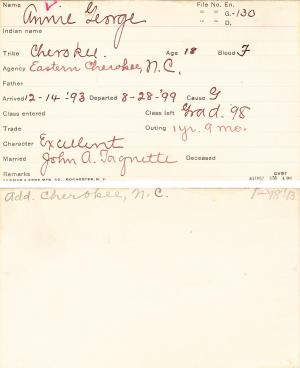 Name Annie George File No. En.
" " G.-130
Indian name " " D.
Tribe Cherokee. Age 18 Blood F
Agency Eastern Cherokee, N.C.
Father
Arrived 12-14-'93 Departed 8-28-'99 Cause G
Class entered Class left Grad. '98
Trade Outing 1 yr. 9 mo.
Character Excellent
Married John A. Taquette Deceased
Remarks
OVER
Add. Cherokee, N.C.